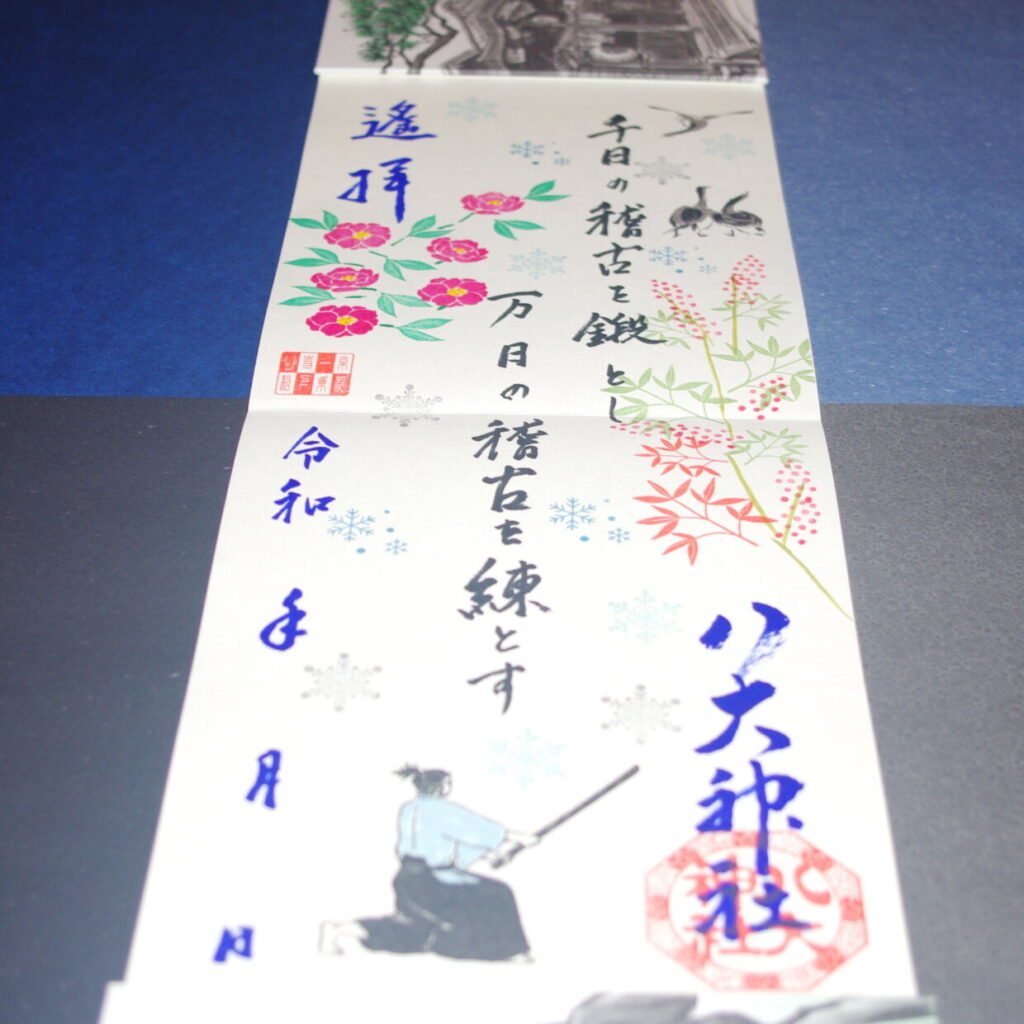 八大神社
千日の稽古を鍛とし
万日の稽古を練とす
遙拝
令和 年 月 日
八大
神社